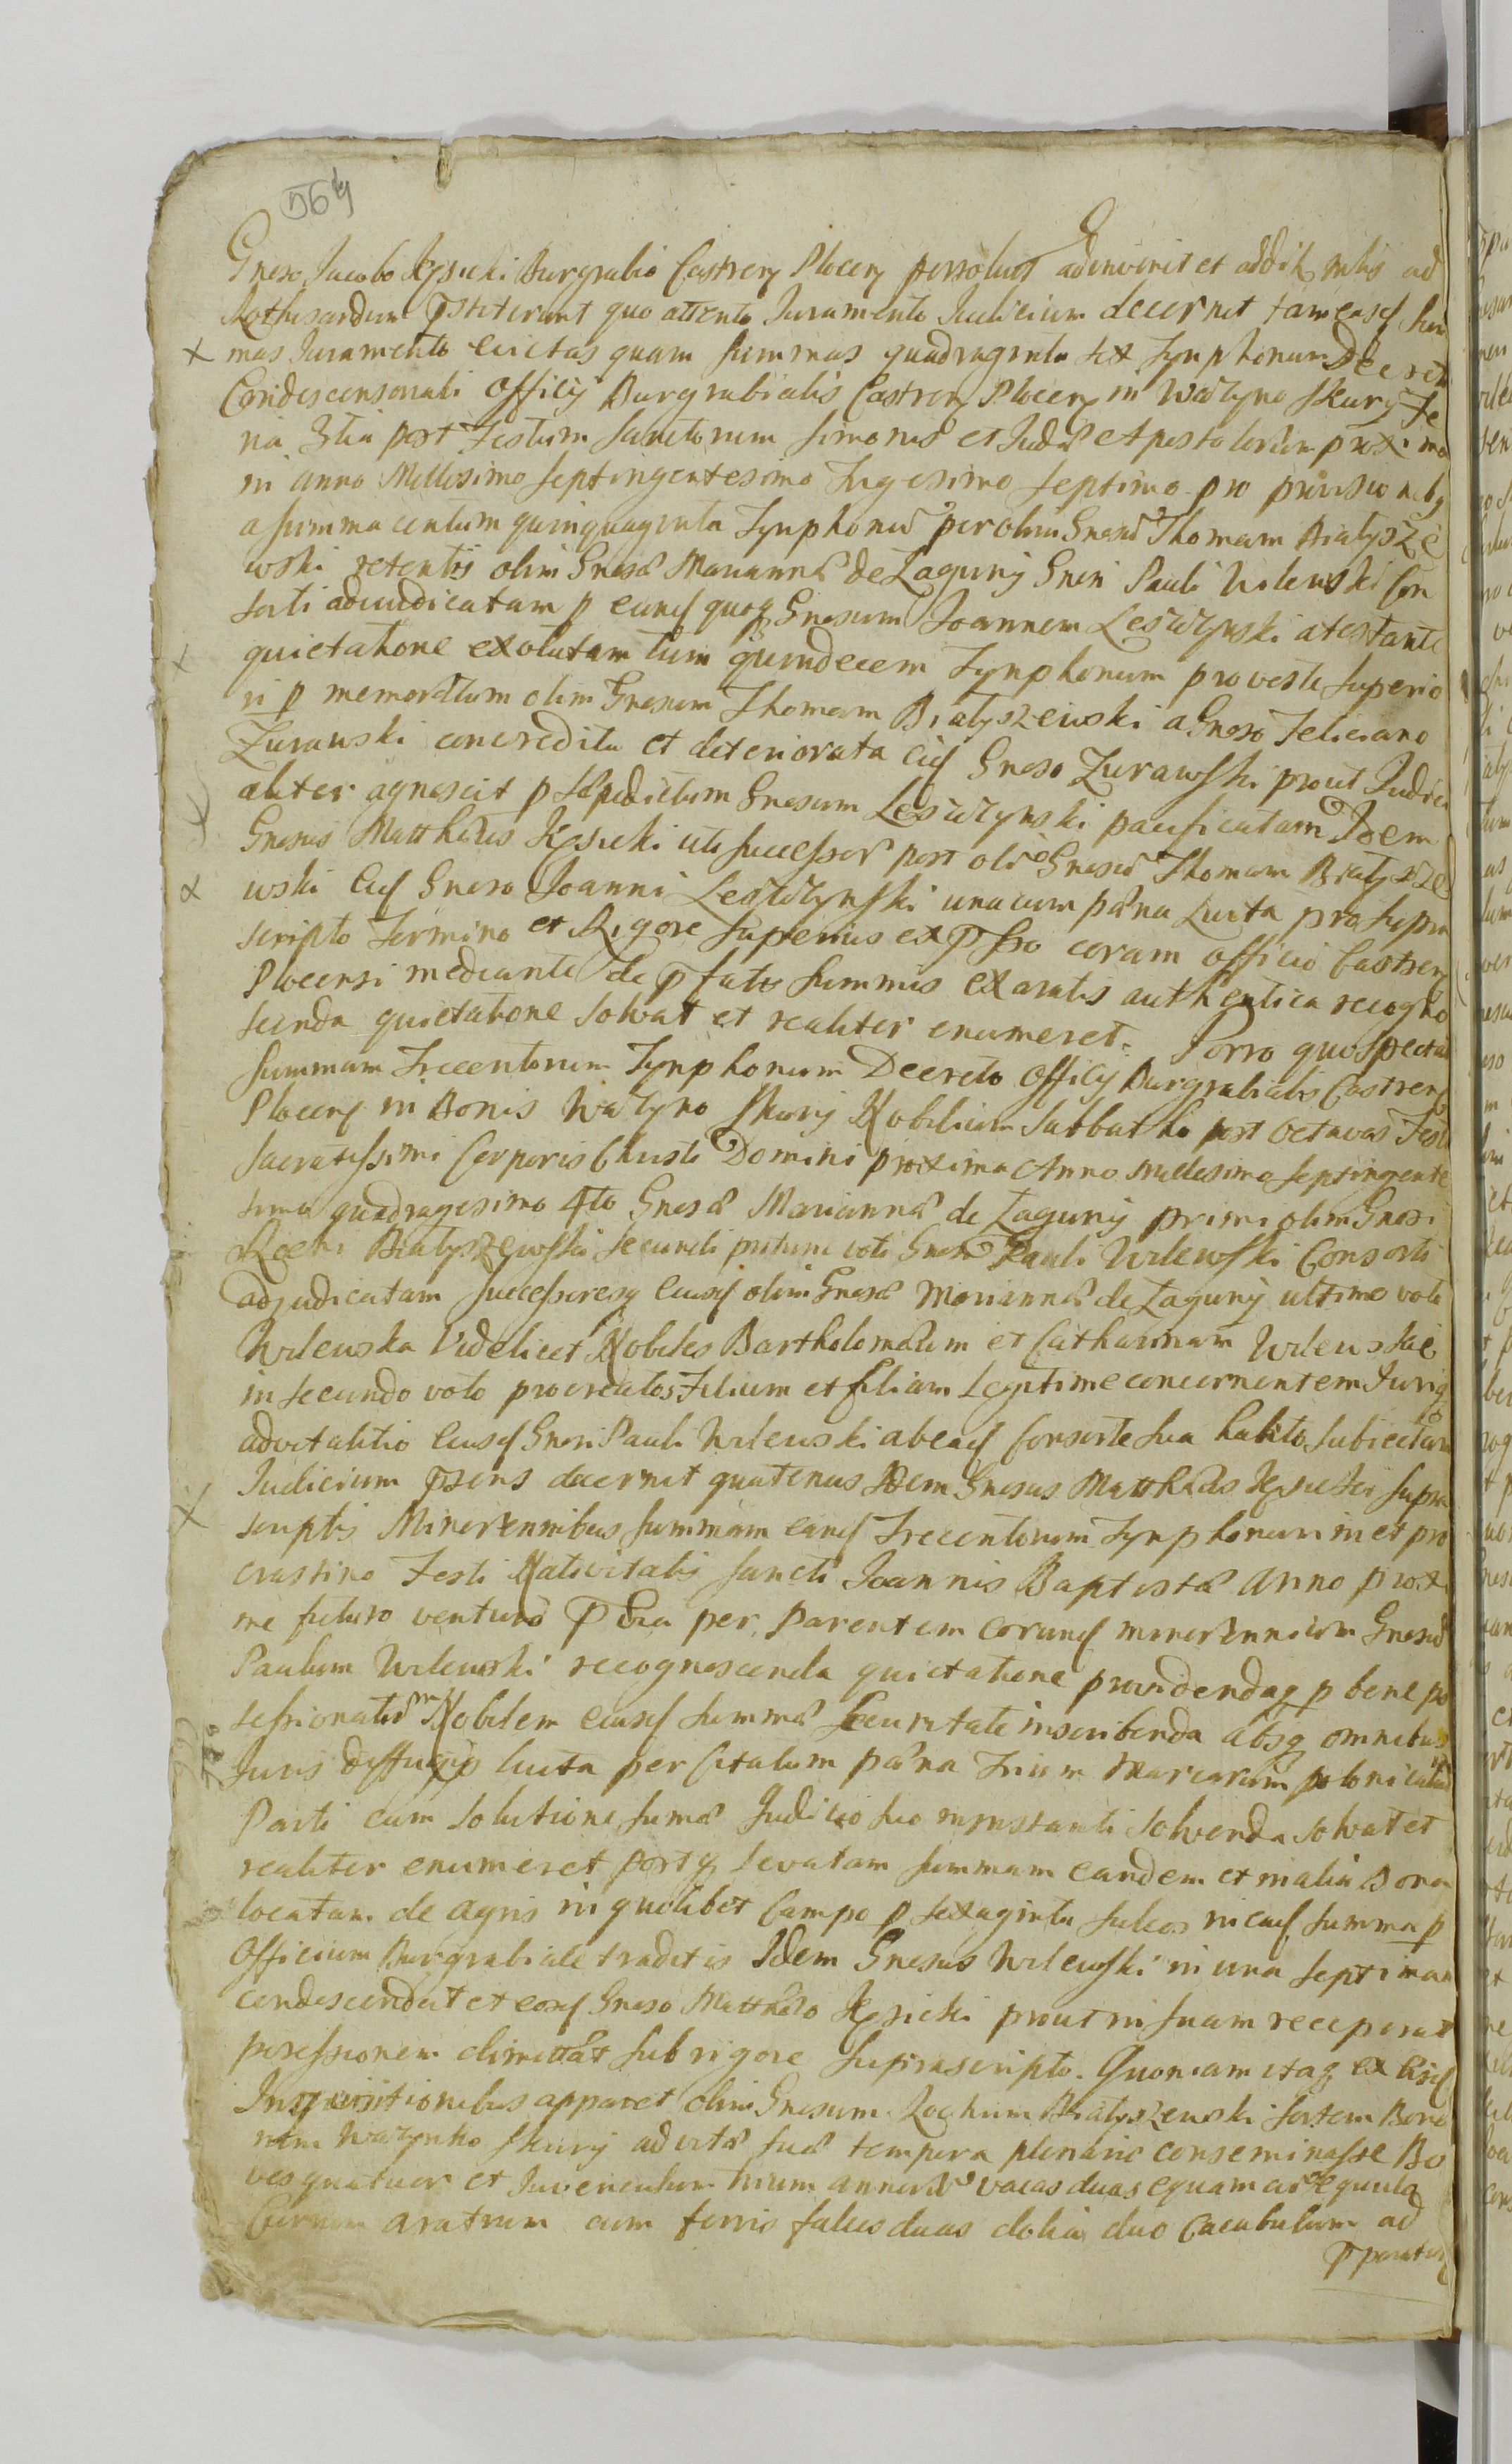 564
Gneso Jacobo Kęsicki Burgrabio Castren Plocen persolvit adinvenit et addit nobis ad
Rothisandum pstiterunt quo attento Juramento Judicium decernit tam easd Sum
mas Juramento evictas quam Summas quadraginta sex Tynphonum Decreto
Condescensionali Officij Burgrabialis Castren Plocen in Wazyno Skury Fe
ria 3tia post Festum Sanctorum Simonis et Judæ Apostolorum proxima
in anno Millesimo Septingentesimo Trigesimo Septimo pro provisionibq
a summa centum quinquaginta Tynphonū per olim Gnesū Thomam Białysze
wski retentis olim Gnesæ Mariannæ de Zaguny Gnesi Pauli Wilewski Con
sorti adiudicatam p eund quoq Gnesum Joannem Leszczynski atestante
quietatione exolutam tum quindecem Tynphonum pro veste superio
ri p memoratum olim Gnesum Thomam Białyszewski a Gneso Feliciano
Zurawski concredita et deteriorata eid Gneso Zurawski prout Judici
aliter agnoscit p sæpedictum Gnesum Leszczynski pacificatam Idem
Gnesus Matthæus Kęsicki uti successor post oliē Gnesū Thomam Białysze
wski Eid Gneso Joanni Leszczynski una cum pæna luita pro supra
scripto Termino et Rigore superius expsso coram officio Castren
Plocensi mediante de pfatis summis exaratis authentica recogno
scenda quietatione solvat et realiter enumeret. Porro quo spectat
Summam Trecentorum Tynphonum Decreto Officij Burgrabialis Castren
Plocen in Bonis Wazyno Skury Nobilium Sabbatho post Octavas Festi
Sacratissimi Corporis Christi Domini proxima Anno Millesimo Septingente
simo quadragesimo 4to Gnesæ Mariannæ de Zaguny primi olim Gnesi
Rochi Białyszewski secundi voti Gnesi Pauli Wilewski Consorti
adjudicatam successoresq eiusd olim Gnesæ Mariannæ de Zaguny ultimo voto
Wilewska Videlicet Nobiles Bartholomæum et Catharinam Wilewskie
in secundo voto procreatos Filium et filiam legitime concernentem Juriq
advitalitio eiusd Gnesi Pauli Wilewski ab ead Consorte sua habito subiectam
Judicium psens decernit quatenus Idem Gnesus Matthæus Kęsicki supra
scriptis Minorennibus Summam eand Trecentorum Tynphonum in et pro
crastino Festi Nativitatis Sancti Joannis Baptistæ Anno proxi
me futuro venturo pvia per Parentem eorund minorennium Gnesū
Paulum Wilewski recognoscenda quietatione providendaq p bene po
sessionatum Nobilem eiusd summæ securitate inscribenda absq omnibus
Juris diffugijs luita per Citatum pæna Trium Marcarum polonicalium
Parti cum solutione sumæ Judicio suo in instanti solvenda solvat et
realiter enumeret postq levatam summam eandem et in alia Bona
locatam de agris in quolibet Campo p sexaginta sulcos in ead summa p
Officium Burgrabiale traditis Idem Gnesus Wilewski in una septimana
condescendat et eosd Gneso Matthæo Kęsicki prout in suam receperat
possessionem dimittat sub rigore supra scripto. Quoniam itaq ex eisd
Inquisitionibus apparet olim Gnesum Rochum Białyszewski sortem Bono
rum Wazynko Skury ad vitæ suæ tempora plenarie conseminasse Bo
ves quatuor et Juvenculum trium annorū vacas duas equam
Currum aratrum cum ferris falces duas dolia duo Cacabulum ad
pparatio